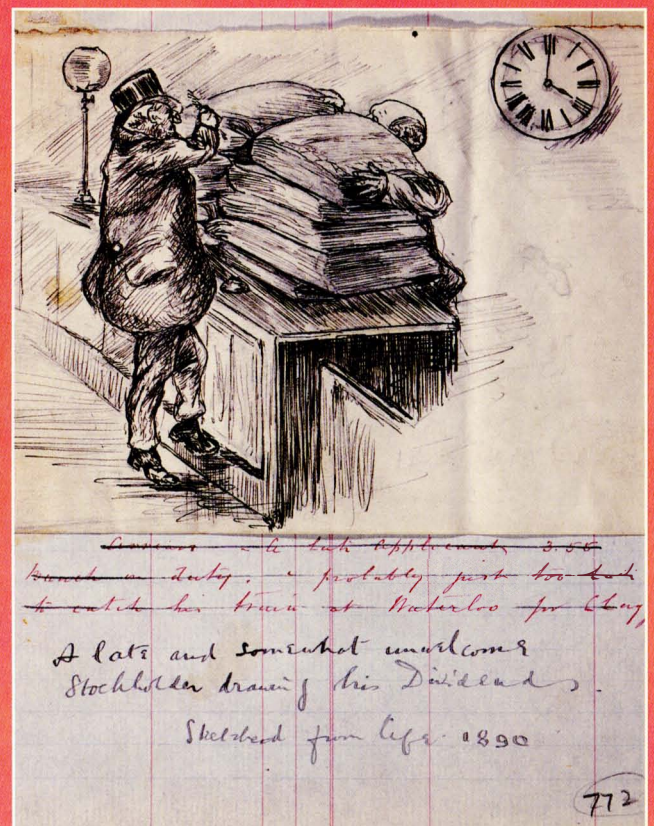 A late Applicant 3.55
on duty. probably just too late
to catch his train at Waterloo for
A late and somewhat unwelcome
Stockholder drawing his Dividends.
Sketched from life 1890
772